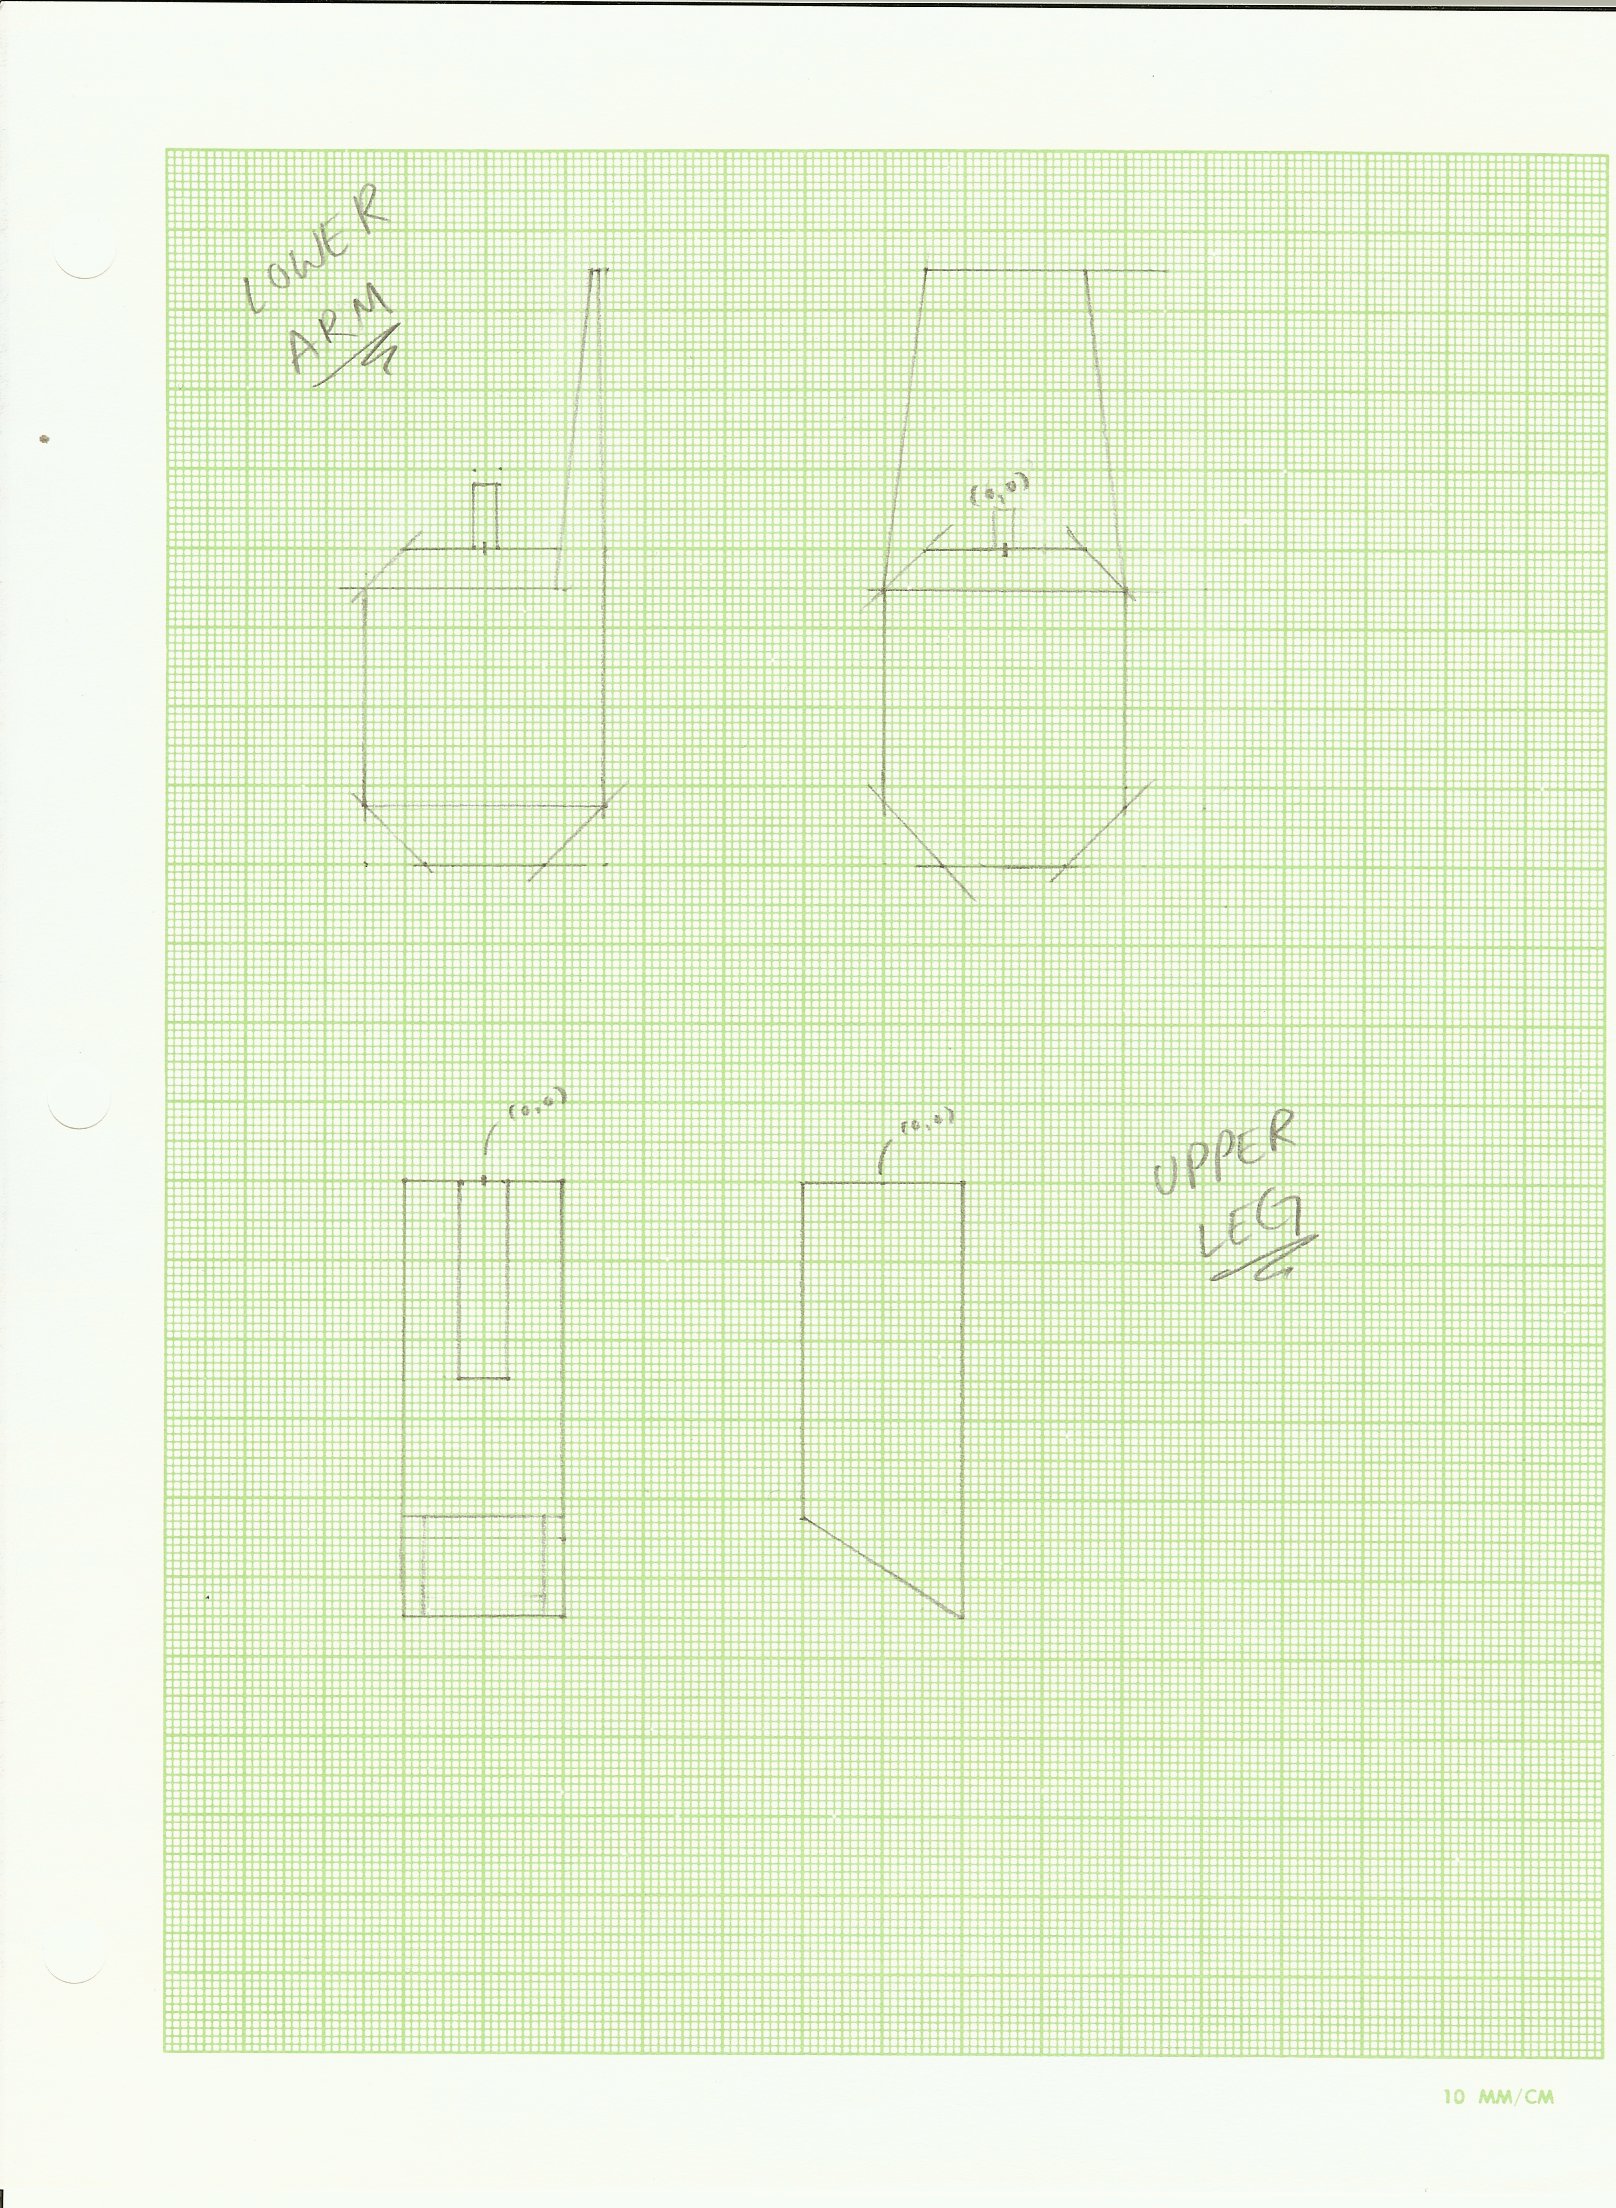 LOWER
ARM
(0,0)
(0,0)
(0,0)
UPPER
LEG
10 MM/CM